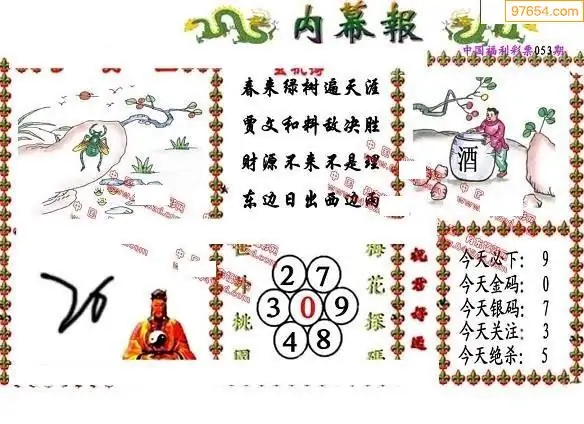 97654.com
内幕報
中国福利彩票053期
玄机诗
春来绿树遍天涯
贾文和料敌决胜
财源不来不是理
东边日出西边雨
酒
26
世外桃園
2 7
3 0 9
4 8
梅花探碼
祝君好运
今天必下: 9
今天金码: 0
今天银码: 7
今天关注: 3
今天绝杀: 5